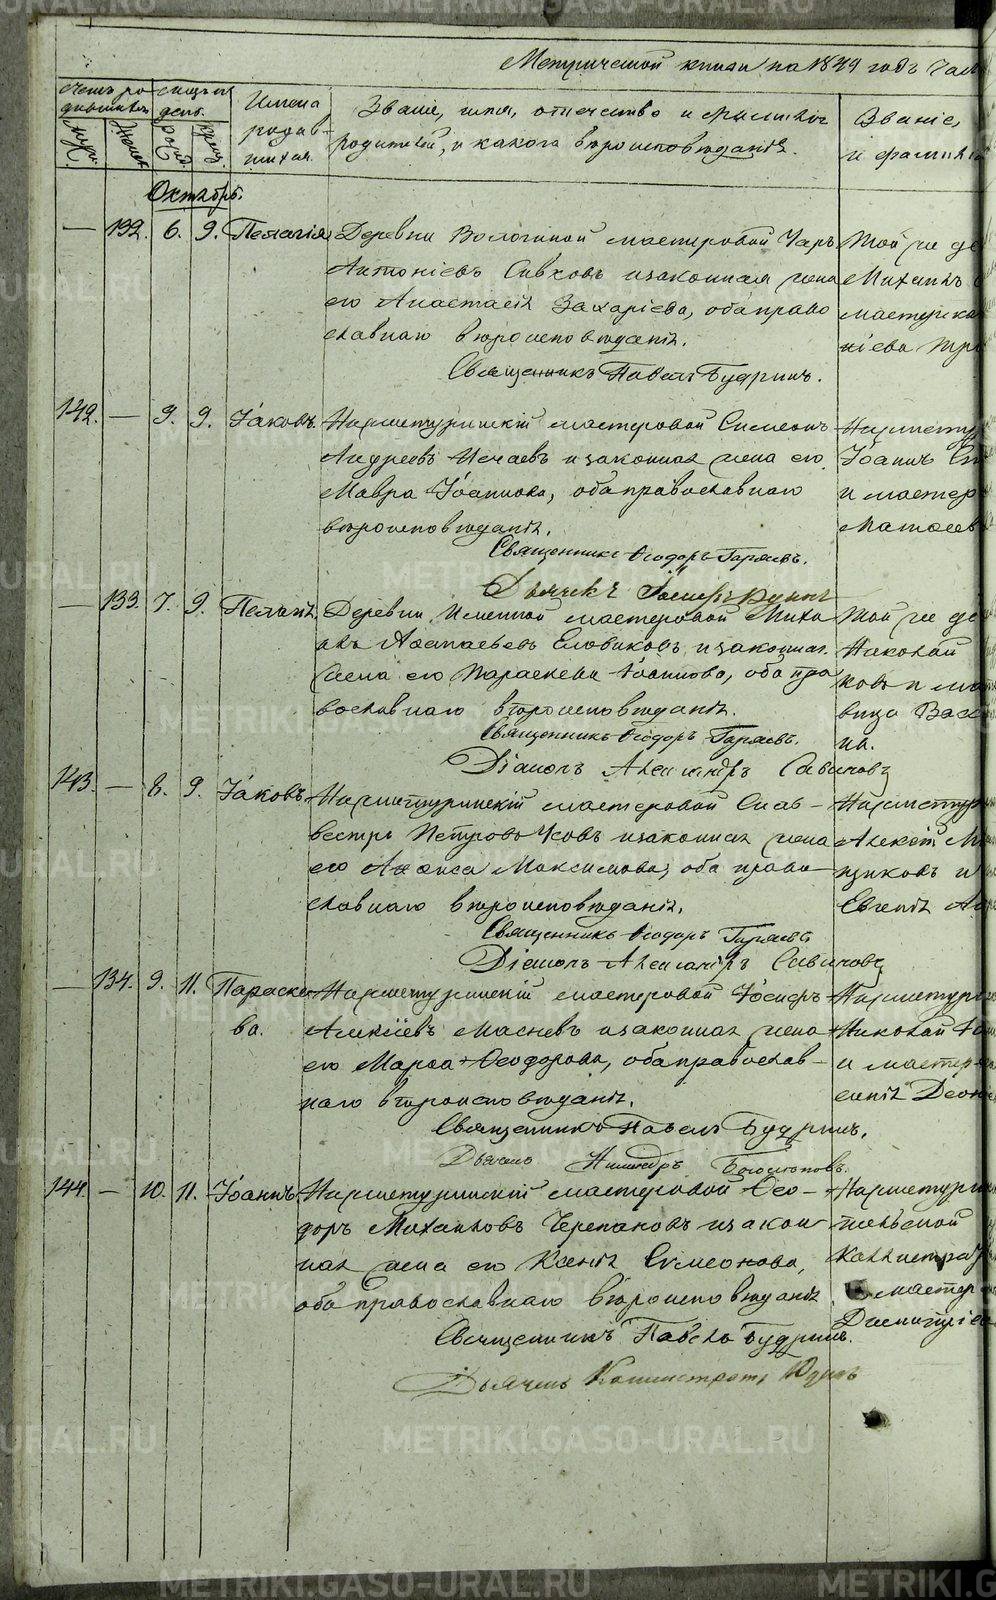 METRIKI.GASO-URAL.RU
Метрической книги на 1849 годъ Част
Счетъ ро
дившихся
Муж.
Женск.
Месяцъ и
день.
рожд.
крещ.
Имена
родив-
шихся.
Званіе, имя, отчество и фамилія
родителей, и какого вѣроисповѣданія.
Званіе,
и фамилія
Октябрь.
— 132. 6. 9. Пелагія Деревни Вологиной мастеровой Чаръ
Антоніевъ Сивковъ и законная жена
его Анастасія Захаріева, оба право
славнаго вѣроисповѣданія.
Священникъ Павелъ Будринъ.
Той же де
Михаилъ
мастерска
142. — 9. 9. Іаковъ. Нижнетуринскій мастеровой Симеонъ
Андреевъ Нечаевъ и законная жена его
Мавра Іоаннова, оба православнаго
вѣроисповѣданія.
Священникъ Ѳеодоръ Гаряевъ.
Дьячекъ
Нижнетур
Іоаннъ
и мастер
Матѳеев
— 133. 7. 9. Пелагія. Деревни Именной мастеровой Миха
илъ Еловиковъ и законная
жена его Параскева Іоаннова, оба пра
вославнаго вѣроисповѣданія.
Священникъ Ѳеодоръ Гаряевъ.
Діаконъ Александръ Савичовъ
Той же де
Николай
ковъ и ма
вица Васи
на.
143. — 8. 9. Іаковъ Нижнетуринскій мастеровой Сив-
вестръ Петровъ Усовъ и законная жена
его Анфиса Максимова, оба право-
славнаго вѣроисповѣданія.
Священникъ Ѳеодоръ Гаряевъ
Діаконъ Александръ Савичовъ
Нижнетур
Алексѣй М
щиковъ и
Евгенія
— 134. 9. 11. Параске-
ва.
Нижнетуринскій мастеровой Іосифъ
Алексіевъ Масневъ и законная жена
его Марѳа Ѳеодорова, оба православ-
наго вѣроисповѣданія.
Священникъ Павелъ Будринъ.
Дьячекъ Богомоловъ.
Нижнетур
Николай
и мастер
144. — 10. 11. Іоаннъ. Нижнетуринскій мастеровой Ѳео-
доръ Михайловъ Черепановъ и закон
ная жена его Ксенія Симеонова,
оба православнаго вѣроисповѣданія
Священникъ Павелъ Будринъ.
Дьячекъ Каллистратъ Юдинъ
Нижнетури
Каллистрат
мастер
Димитріев